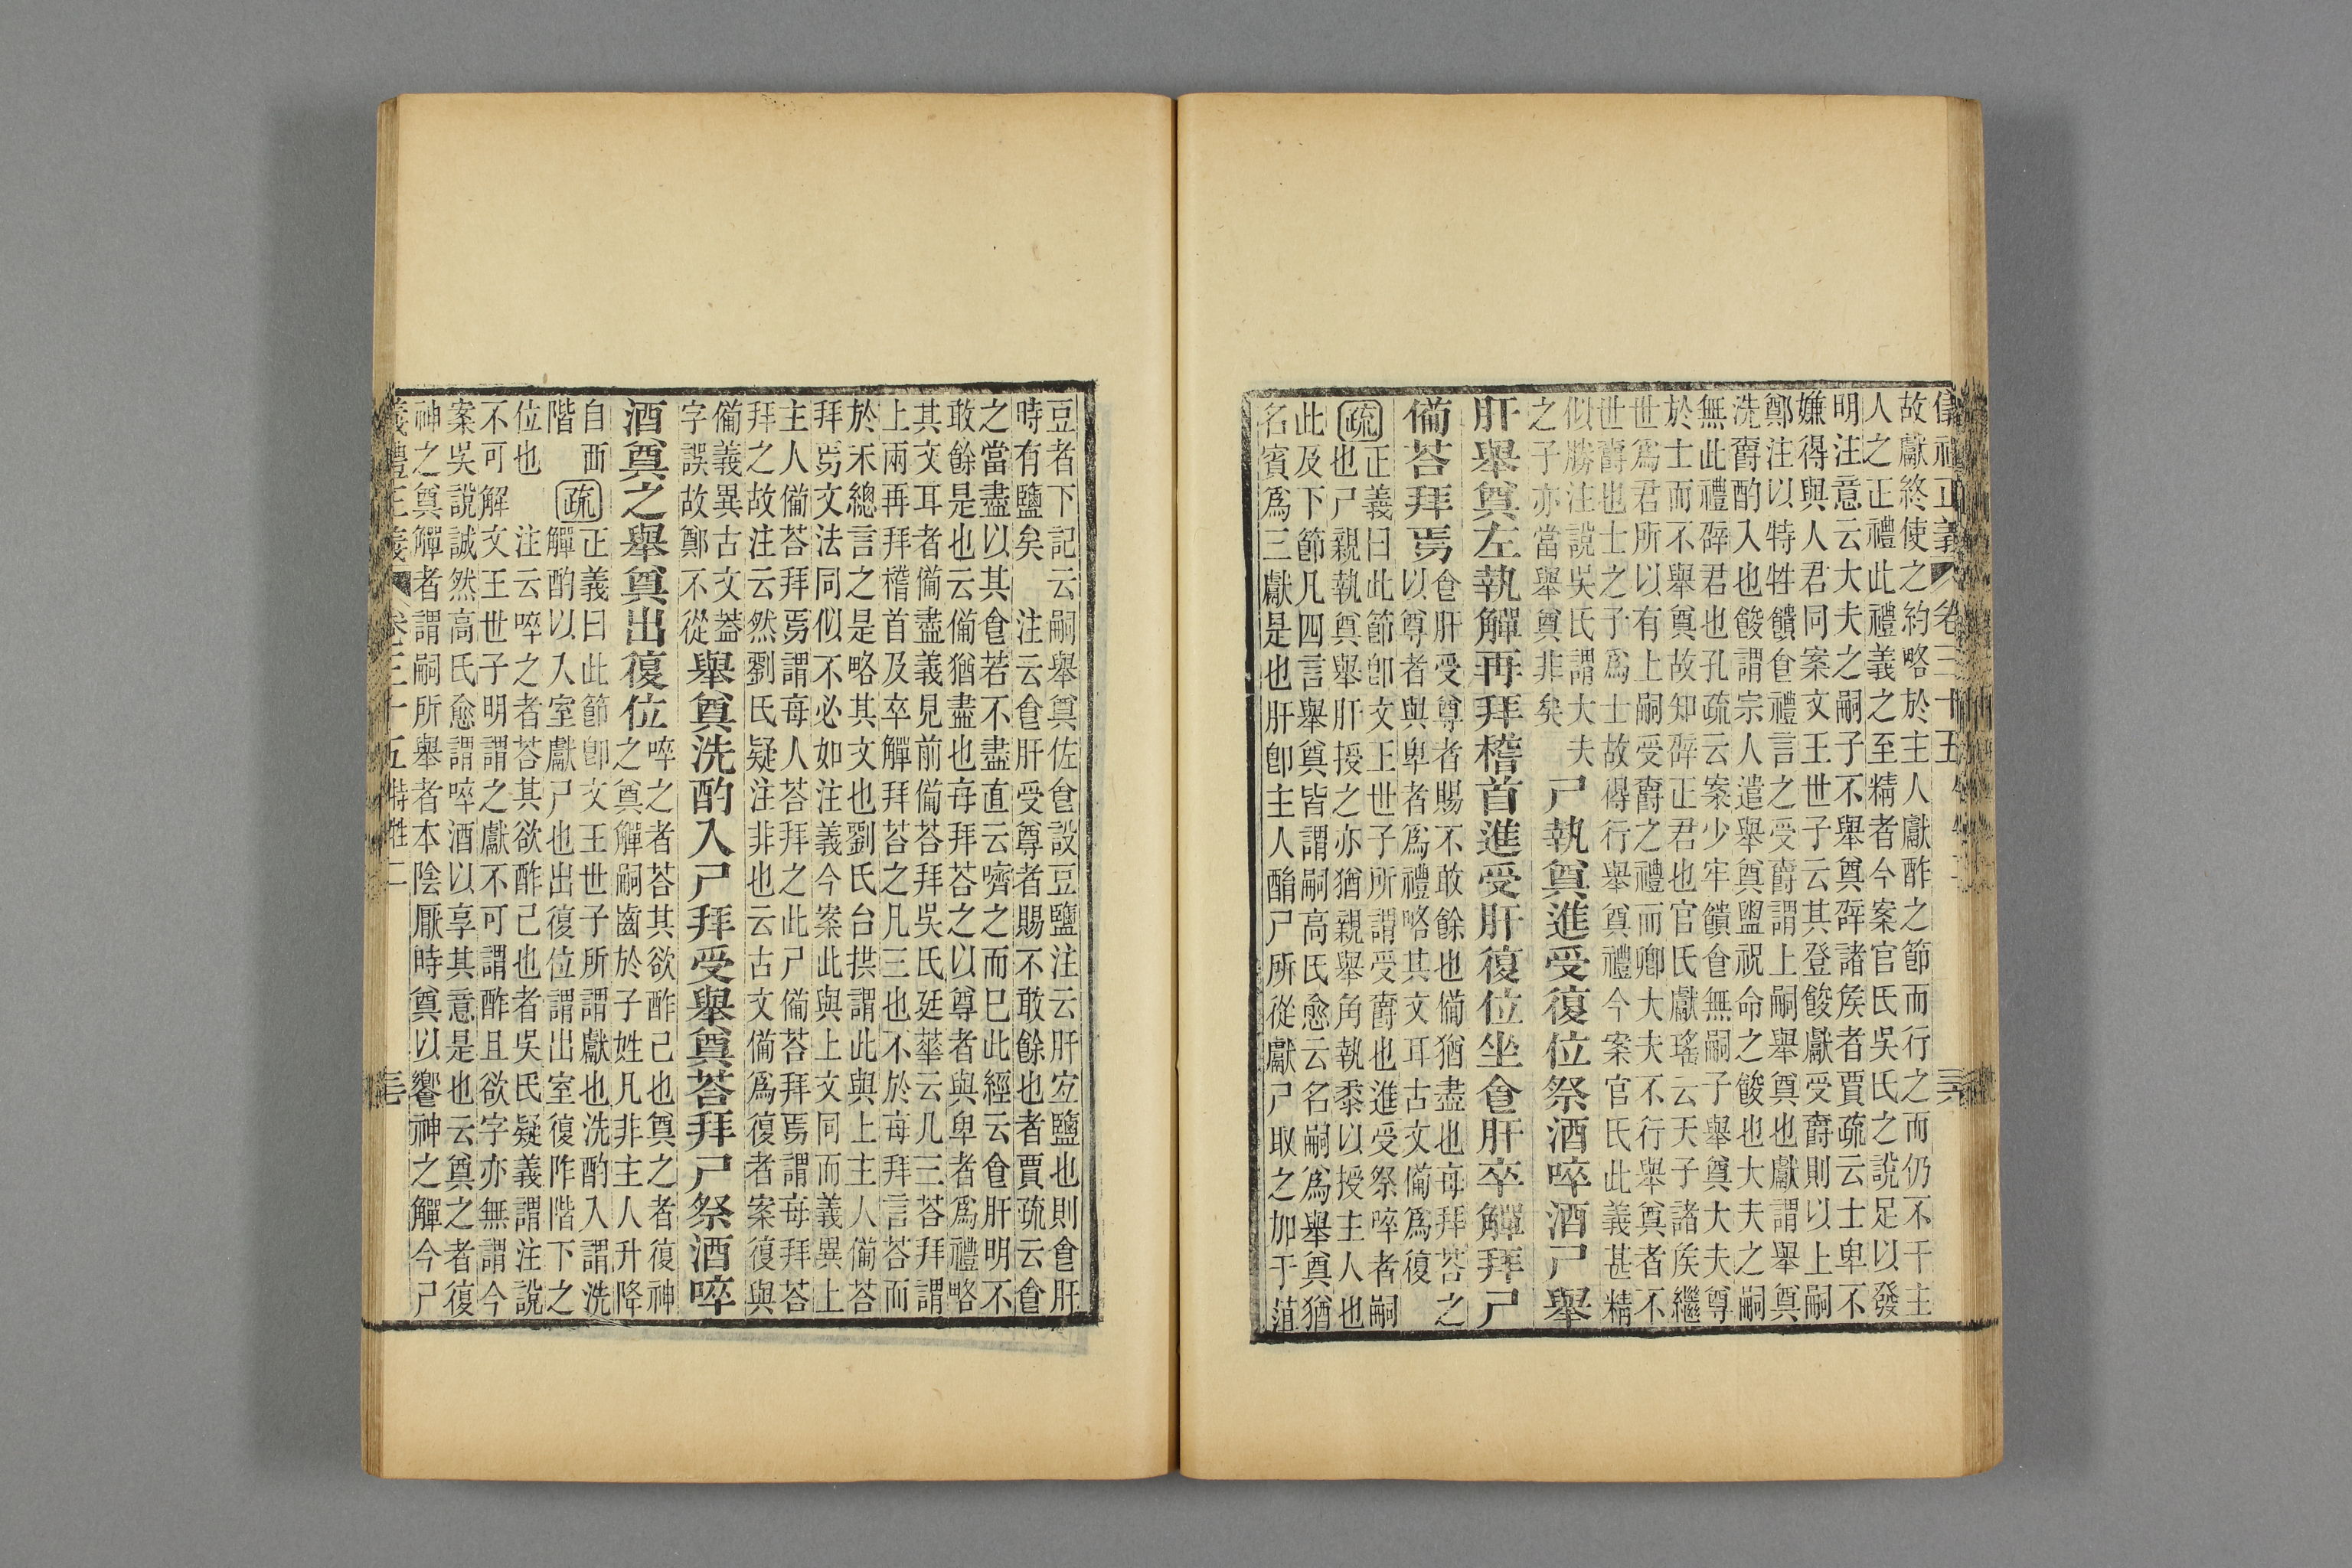 儀禮正義 卷三十五 特牲二 三六
故獻終使之約略於主人獻酢之節而行之而仍不干主
人之正禮此禮義之至精者今案官氏吳氏之說足以發
明注意云大夫之嗣子不舉奠辟諸矦者賈疏云士卑不
嫌得與人君同案文王世子云其登餕獻受爵則以上嗣
鄭注以特牲饋食禮言之受爵謂上嗣舉奠也獻謂舉奠
洗爵酌入也餕謂宗人遣舉奠盥祝命之餕也大夫之嗣
無此禮辟君也孔疏云案少牢饋食無嗣子舉奠大夫尊
於士而不舉奠故知辟正君也官氏獻瑤云天子諸矦繼
世爲君所以有上嗣受爵之禮而卿大夫不行舉奠者不
世爵也士之子爲士故得行舉奠禮今案官氏此義甚精
似勝注說吳氏謂大夫
之子亦當舉奠非矣
尸執奠進受復位祭酒啐酒尸舉
肝舉奠左執觶再拜稽首進受肝復位坐食肝卒觶拜尸
備荅拜焉
食肝受尊者賜不敢餘也備猶盡也每拜荅之
以尊者與卑者爲禮略其文耳古文備爲復
疏
正義曰此節卽文王世子所謂受爵也進受祭啐者嗣
也尸親執奠舉肝授之亦猶親舉角執黍以授主人也
此及下節凡四言舉奠皆謂嗣高氏愈云名嗣爲舉奠猶
名賓爲三獻是也肝卽主人酳尸所從獻尸取之加于菹
豆者下記云嗣舉奠佐食設豆鹽注云肝宐鹽也則食肝
時有鹽矣 注云食肝受尊者賜不敢餘也者賈疏云食
之當盡以其食若不盡直云嚌之而已此經云食肝明不
敢餘是也云備猶盡也每拜荅之以尊者與卑者爲禮略
其文耳者備盡義見前備荅拜吳氏廷華云凡三荅拜謂
上兩再拜稽首及卒觶拜荅之凡三也不於每拜言荅而
於禾總言之是略其文也劉氏台拱謂此與上主人備荅
拜焉文法同似不必如注義今案此與上文同而義異上
主人備荅拜焉謂每人荅拜之此尸備荅拜焉謂每拜荅
拜之故注云然劉氏疑注非也云古文備爲復者案復與
備義異古文葢
字誤故鄭不從
舉奠洗酌入尸拜受舉奠荅拜尸祭酒啐
酒奠之舉奠出復位
啐之者荅其欲酢己也奠之者復神
之奠觶嗣齒於子姓凡非主人升降
自西
階
疏
正義曰此節卽文王世子所謂獻也洗酌入謂洗
觶酌以入室獻尸也出復位謂出室復阼階下之
位也 注云啐之者荅其欲酢己也者吳氏疑義謂注說
不可解文王世子明謂之獻不可謂酢且欲字亦無謂今
案吳說誠然高氏愈謂啐酒以享其意是也云奠之者復
神之奠觶者謂嗣所舉者本陰厭時奠以饗神之觶今尸
儀禮正義 卷三十五 特牲二